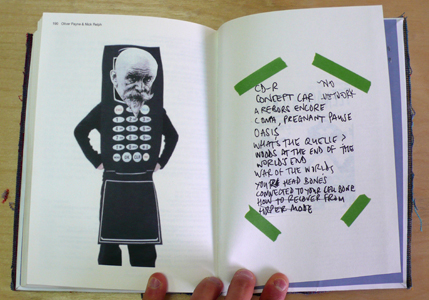 Oliver Payne & Nick Relph
CD-R
~NO
CONCEPT CAR NETWORK
AREBORS ENCORE
COMA, PREGNANT PAUSE
OASIS
WHAT'S THE
WOODS AT THE END OF THE
WORLDS END
WAR OF THE WORLDS
HEAD BONES
CONNECTED TO YOUR CELL BONE
HOW TO RECOVER FROM
HYPER MODE